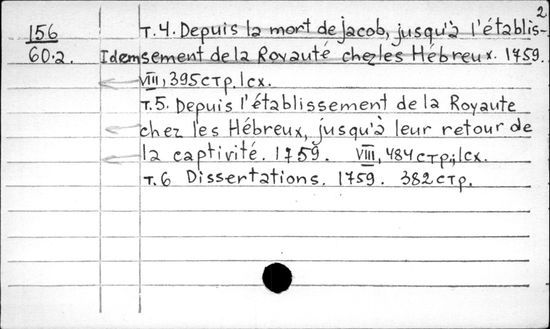 2
156 т.4. Depuis la mort de jacob, jusqu'à l'établis-
60.2. Idem sement de la Royauté chez les Hébreux. 1759.
VIII, 395 стр. lcx.
т.5. Depuis l'établissement de la Royaute
chez les Hébreux, jusqu'à leur retour de
la captivité. 1759. VIII, 484 стр.; lcx.
т.6 Dissertations. 1759. 382 стр.